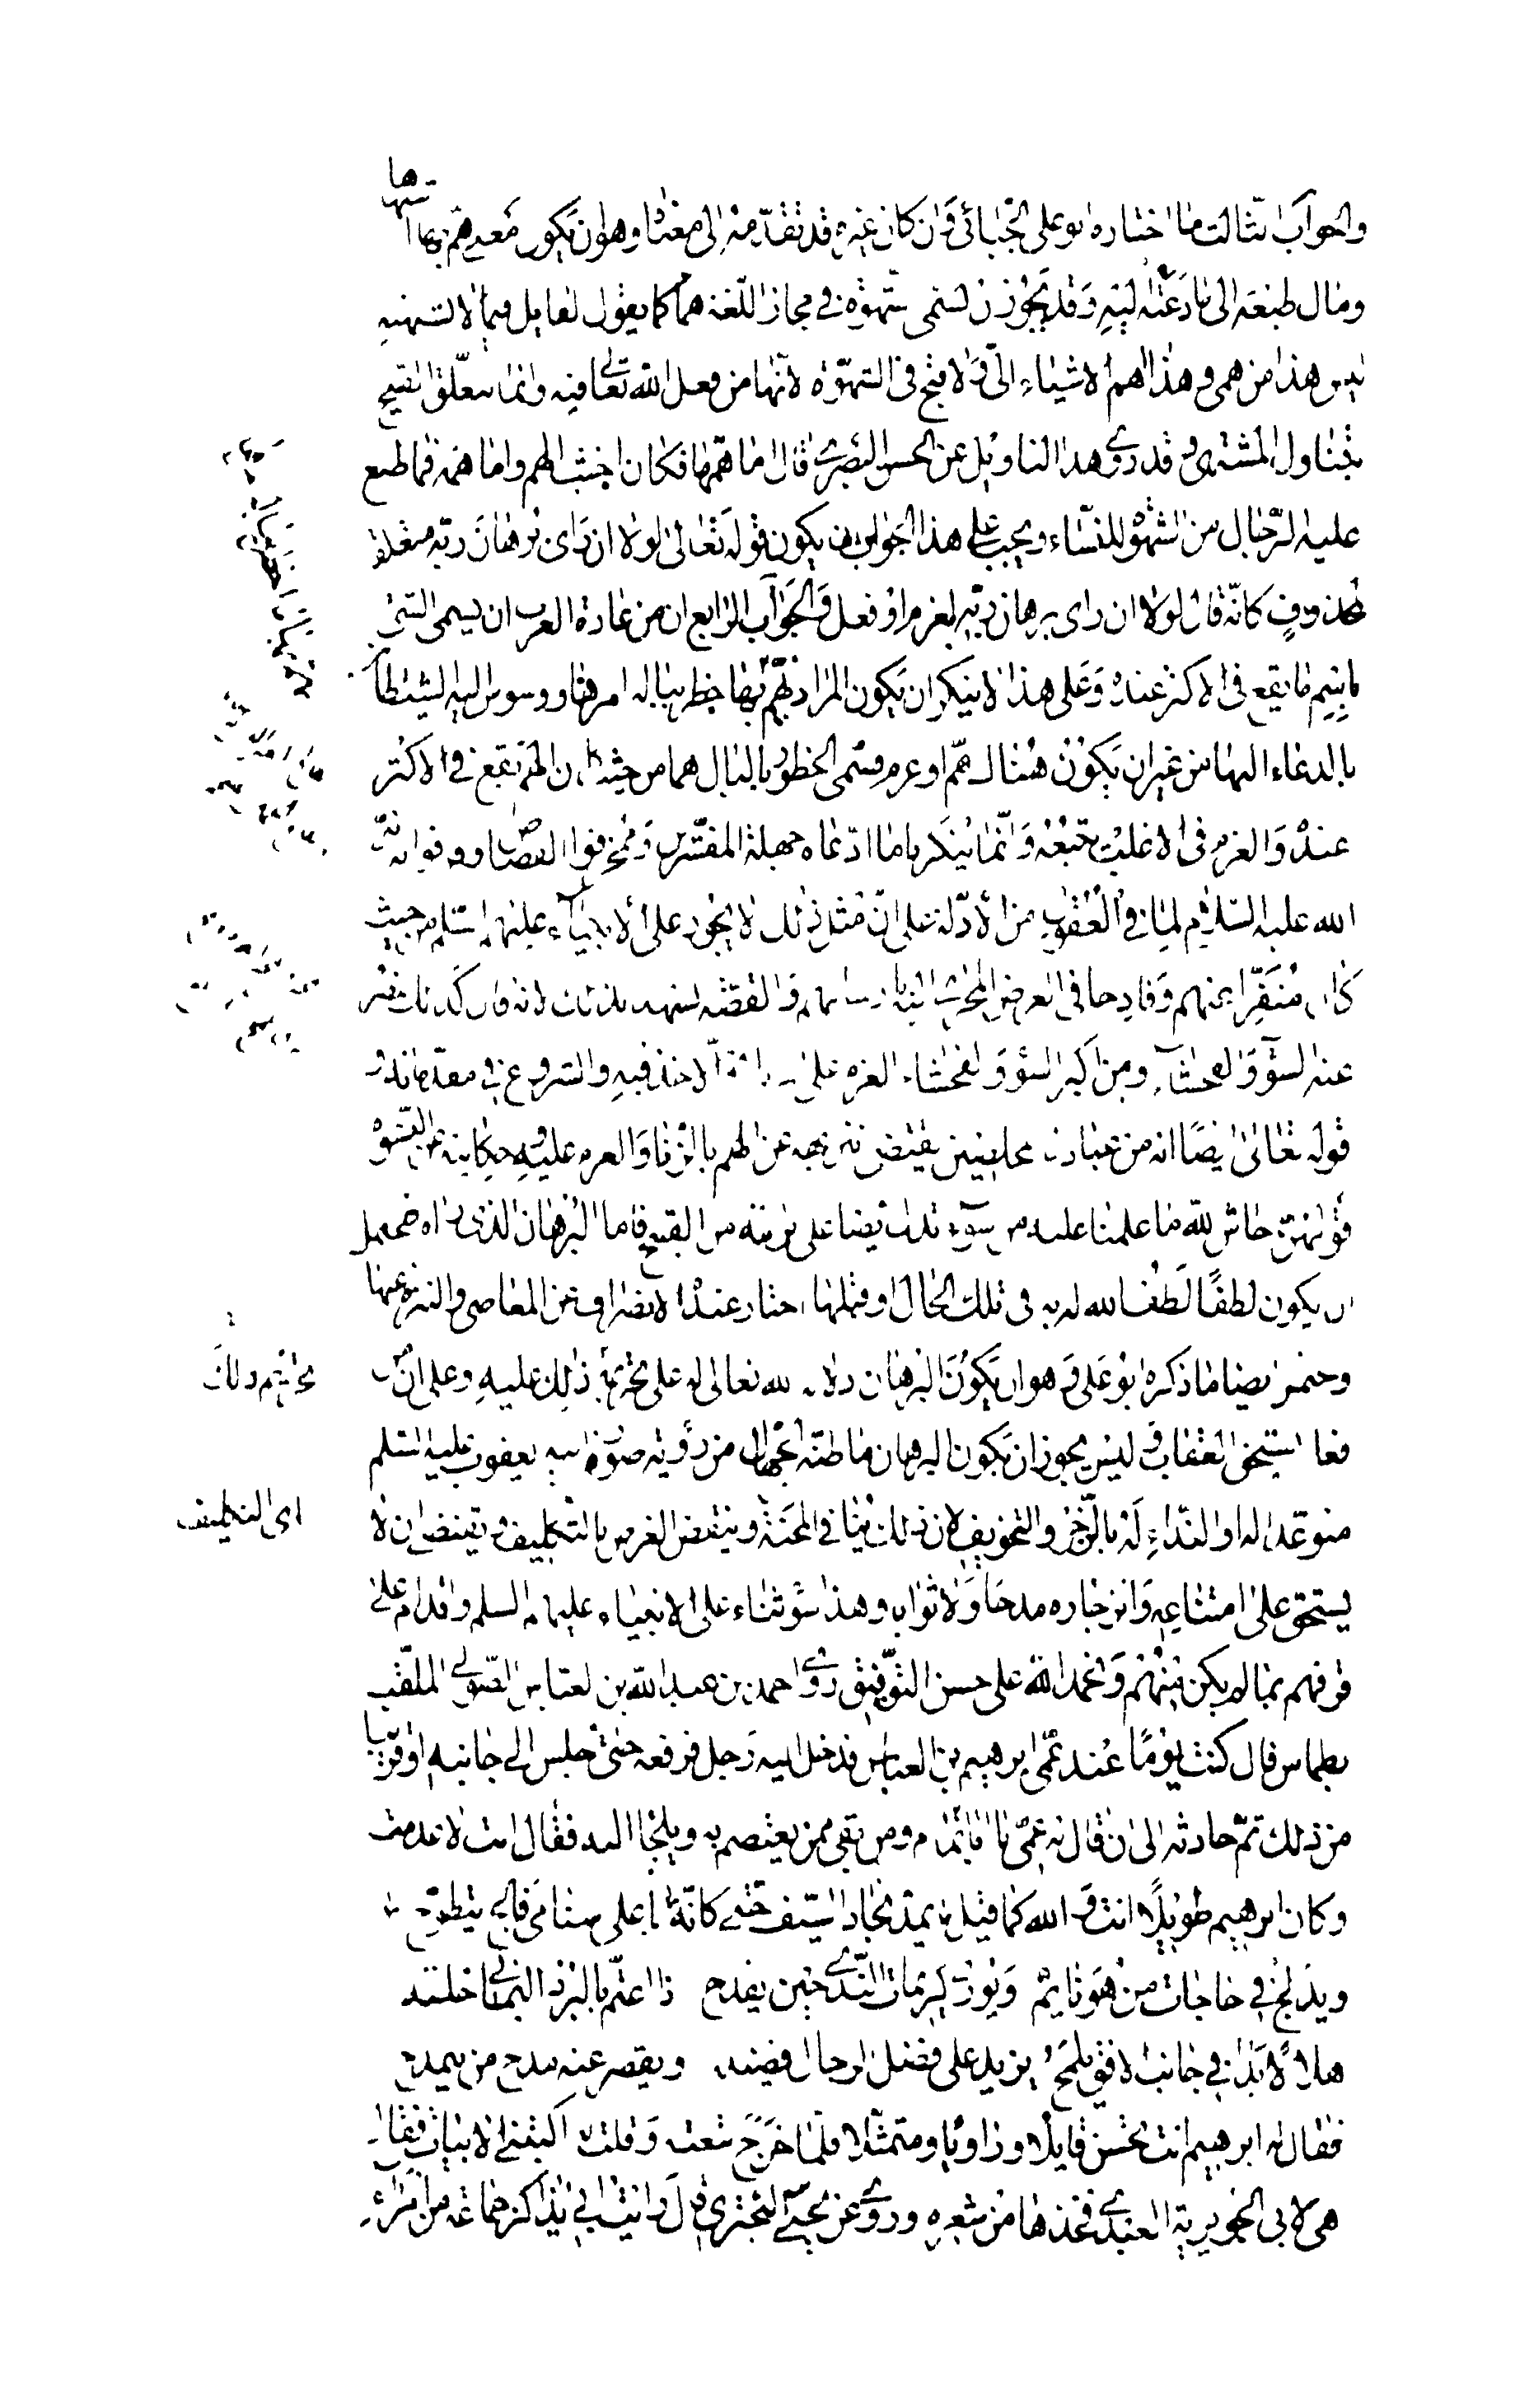 والجواب الثالث ما اختاره ابو علي الجبائي وان كان غيره قد تقدمه الى معناه وهو ان يكون معنى هم بها اشتهاها
ومال طبعه الى ما دعته اليه وقد يجوز ان تسمى الشهوة في مجاز اللغة هما كما يقول القايل فيما لا يشتهيه
ليس هذا من همي وهذا اهم الاشياء الي ولا قبح في الشهوة لانها من فعل الله تعالى فيه وانما يتعلق القبيح
بتناول المشتهى وقد روي هذا التاويل عن الحسن البصري قال اما همها فكان اخبث الهم واما همه فما طبع
عليه الرجال من شهوة النساء ويجب على هذا الجواب ان يكون قوله تعالى لولا ان راى برهان ربه متعلقا
بمحذوف كانه قال لولا ان راى برهان ربه لعزم او فعل والجواب الرابع ان من عادة العرب ان يسمى الشيء
باسم ما يقع في الاكثر عنده وعلى هذا لا ينكر ان يكون المراد بهم بها خطر بباله امرها ووسوس اليه الشيطان
بالدعاء اليها من غير ان يكون هناك هم او عزم فسمى الخطور بالبال هما من حيث كان الهم يقع في الاكثر
عنده والعزم في الاغلب يتبعه وانما ينكر ما ادعاه جهلة المفسرين ومخرفوا القصاص وقرفوا به نبي
الله عليه السلام لما في العقول من الادلة على ان مثل ذلك لا يجوز على الانبياء عليهم السلم من حيث
كان منفرا عنهم وقادحا في الغرض المجري اليه بارسالهم والقصة تشهد بذلك لانه قال كذلك لنصرف
عنه السوء والفحشاء ومن اكبر السوء والفحشاء العزم على الزنا ثم الاخذ فيه والشروع في مقدماته و
قوله تعالى ايضا انه من عبادنا المخلصين يقتضي تنزيهه عن الهم بالزنا والعزم عليه وحكايته عن النسوة
قولهن حاش لله ما علمنا عليه من سوء تدل ايضا على براءته من القبيح فاما البرهان الذي راه فيحتمل
ان يكون لطفا لطف الله له به في تلك الحال او قبلها اختار عنده الانصراف عن المعاصي والتنزه عنها
ويحتمل ايضا ما ذكره ابو علي وهو ان يكون البرهان دلالة الله تعالى له على تحريم ذلك عليه وعلى ان من
فعله استحق العقاب وليس يجوز ان يكون البرهان ما ظنه الجهال من رؤية صورة ابيه يعقوب عليه السلم
متوعدا له او النداء له بالزجر والتخويف لان ذلك ينافي المحنة وينقض الغرض بالتكليف ويقتضي ان لا
اي التكليف
يستحق على امتناعه وانزجاره مدحا ولا ثوابا وهذا سوء ثناء على الانبياء عليهم السلم واقدام على
قرفهم بما لم يكن منهم والحمد لله على حسن التوفيق روى احمد بن عبد الله بن العباس الصولي الملقب
بطماس قال كنت يوما عند عمي ابرهيم بن العباس فدخل اليه رجل فرفعه حتى جلس الى جانبه او قريبا
من ذلك ثم حادثه الى ان قال له عمي يا ابا تمام ومن بقي ممن يعتصم به ويلجا اليه فقال انت لا عدمت
وكان ابرهيم طويلا انت والله كما قيل يمد نجاد السيف حتى كانه باعلى سنامي فالج يتطوح
ويدلج في حاجات من هو نايم ويوري كريمات الندى حين يقدح اذا اعتم بالبرد اليماني خلته
هلالا بدا في جانب الافق يلمح يزيد على فضل الرجال فضيله ويقصر عنه مدح من يمدح
فقال له ابرهيم انت تحسن قايلا وراويا ومتمثلا فلما خرج تبعته وقلت اكتبني الابيات فقال
هي لابي الجويرية العبدي فخذها من شعره وروى عن يحيى البحتري قال رايت ابي يذاكر جماعة من امراء